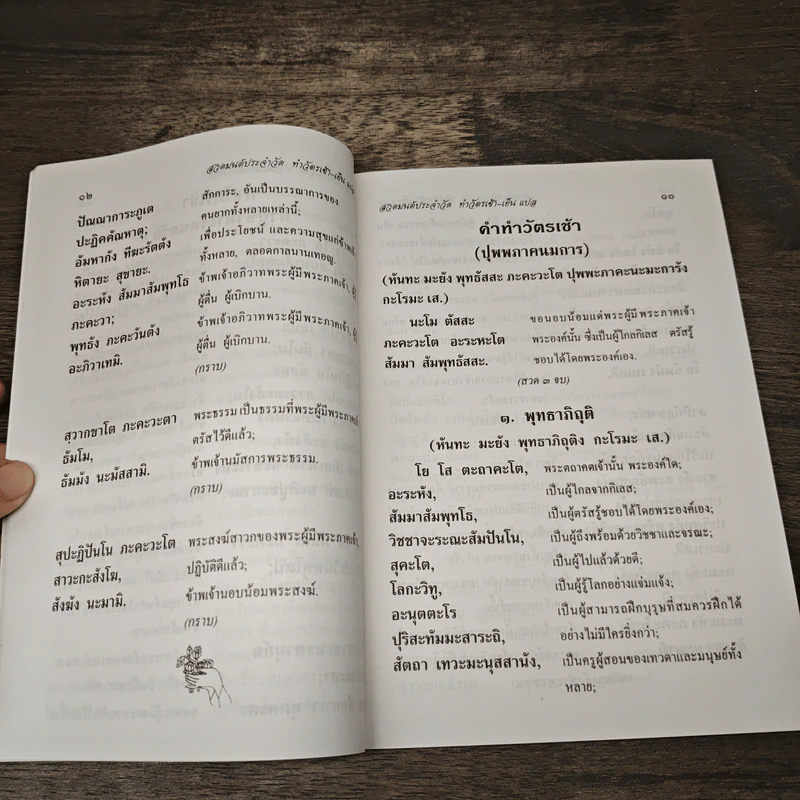 ๑๒
สวดมนต์ประจำวัด ทำวัตรเช้า-เย็น แปล
ปัณณาการะภูเต สักการะ, อันเป็นบรรณาการของ
คนยากทั้งหลายเหล่านี้;
ปะฏิคคัณหาตุ; เพื่อประโยชน์ และความสุขแก่ข้าพเจ้า
อัมหากัง ทีฆะรัตตัง ทั้งหลาย, ตลอดกาลนานเทอญ.
หิตายะ สุขายะ.
อะระหัง สัมมาสัมพุทโธ ข้าพเจ้าอภิวาทพระผู้มีพระภาคเจ้า, ผู้รู้
ภะคะวา; ผู้ตื่น ผู้เบิกบาน.
พุทธัง ภะคะวันตัง ข้าพเจ้าอภิวาทพระผู้มีพระภาคเจ้า, ผู้รู้
อะภิวาเทมิ. ผู้ตื่น ผู้เบิกบาน.
(กราบ)
สวากขาโต ภะคะวะตา พระธรรม เป็นธรรมที่พระผู้มีพระภาคเจ้า,
ธัมโม, ตรัสไว้ดีแล้ว;
ธัมมัง นะมัสสามิ. ข้าพเจ้านมัสการพระธรรม.
(กราบ)
สุปะฏิปันโน ภะคะวะโต พระสงฆ์สาวกของพระผู้มีพระภาคเจ้า,
สาวะกะสังโฆ, ปฏิบัติดีแล้ว;
สังฆัง นะมามิ. ข้าพเจ้านอบน้อมพระสงฆ์.
(กราบ)
สวดมนต์ประจำวัด ทำวัตรเช้า-เย็น แปล ๑๓
คำทำวัตรเช้า
(ปุพพภาคนมการ)
(หันทะ มะยัง พุทธัสสะ ภะคะวะโต ปุพพะภาคะนะมะการัง
กะโรมะ เส.)
นะโม ตัสสะ ขอนอบน้อมแด่พระผู้มีพระภาคเจ้า
ภะคะวะโต อะระหะโต พระองค์นั้น ซึ่งเป็นผู้ไกลกิเลส ตรัสรู้
สัมมา สัมพุทธัสสะ. ชอบได้โดยพระองค์เอง.
(สวด ๓ จบ)
๑. พุทธาภิถุติ
(หันทะ มะยัง พุทธาภิถุติง กะโรมะ เส.)
โย โส ตะถาคะโต, พระตถาคตเจ้านั้น พระองค์ใด;
อะระหัง, เป็นผู้ไกลจากกิเลส;
สัมมาสัมพุทโธ, เป็นผู้ตรัสรู้ชอบได้โดยพระองค์เอง;
วิชชาจะระณะสัมปันโน, เป็นผู้ถึงพร้อมด้วยวิชชาและจรณะ;
สุคะโต, เป็นผู้ไปแล้วด้วยดี;
โลกะวิทู, เป็นผู้รู้โลกอย่างแจ่มแจ้ง;
อะนุตตะโร เป็นผู้สามารถฝึกบุรุษที่สมควรฝึกได้
ปุริสะทัมมะสาระถิ, อย่างไม่มีใครยิ่งกว่า;
สัตถา เทวะมะนุสสานัง, เป็นครูผู้สอนของเทวดาและมนุษย์ทั้ง
หลาย;